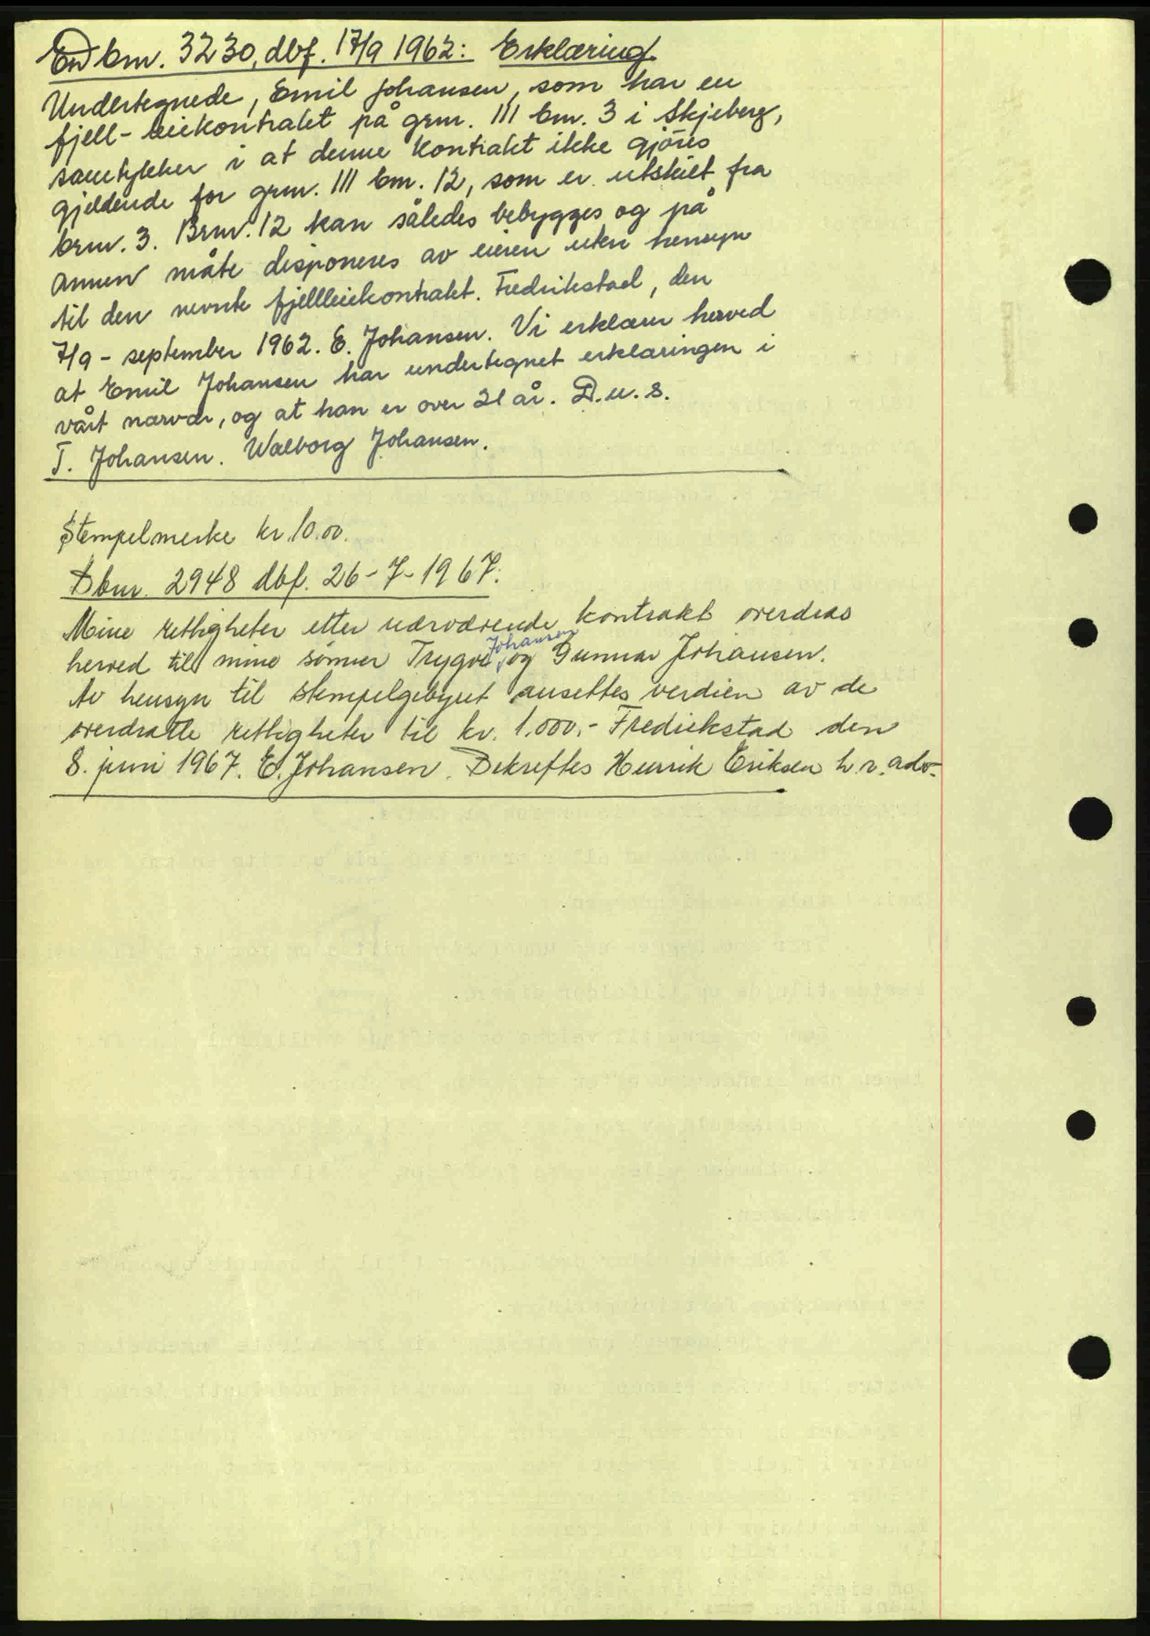 Dbnr. 3230, dbf. 17/9 1962: Erklæring
Undertegnede, Emil Johansen, som har en
fjell-leiekontrakt på grnr. 111 bnr. 3 i Skjeberg,
samtykker i at denne kontrakt ikke gjøres
gjeldende for grnr. 111 bnr. 12, som er utskilt fra
brnr. 3. Brnr. 12 kan således bebygges og på
annen måte disponeres av eieren uten hensyn
til den nevnte fjellleiekontrakt. Fredrikstad, den
7/9 - september 1962. E. Johansen. Vi erklærer herved
at Emil Johansen har undertegnet erklæringen i
vårt nærvær, og at han er over 21 år. D.u.s.
T. Johansen. Walborg Johansen.
Stempelmerke kr. 10.00.
Dbnr. 2948 dbf. 26-7-1967.
Mine rettigheter etter nærværende kontrakt overdras
herved til mine sønner Trygve Johansen og Gunnar Johansen.
Av hensyn til stempelgebyret ansettes verdien av de
overdratte rettigheter til kr. 1.000,- Fredrikstad den
8. juni 1967. E. Johansen. Bekreftes Henrik Eriksen h.r.adv.